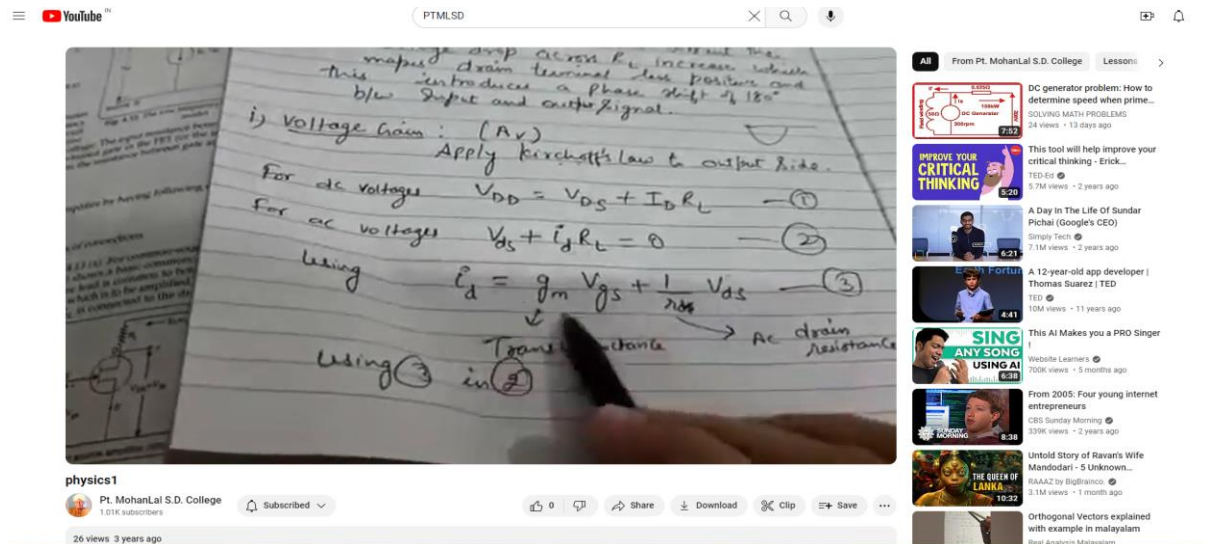 YouTube IN
PTMLSD
drop across RL increase which
makes drain terminal less positive and
this introduces a Phase shift of 180°
b/w Input and output signal.
i) Voltage Gain : (Av)
Apply Kirchoff's Law to output side.
For dc voltages VDD = VDS + ID RL —①
For ac voltages Vds + id RL = 0 —②
Using id = gm Vgs + 1/rds Vds —③
Ac drain
resistance
Using ③ in ②
physics1
Pt. MohanLal S.D. College
1.01K subscribers
Subscribed
0
Share
Download
Clip
Save
26 views 3 years ago
All
From Pt. MohanLal S.D. College
Lessons
DC generator problem: How to
determine speed when prime...
SOLVING MATH PROBLEMS
24 views • 13 days ago
DC Generator
7:52
This tool will help improve your
critical thinking - Erick...
TED-Ed
5.7M views • 2 years ago
IMPROVE YOUR
CRITICAL
THINKING
5:20
A Day In The Life Of Sundar
Pichai (Google's CEO)
Simply Tech
7.1M views • 2 years ago
6:21
A 12-year-old app developer |
Thomas Suarez | TED
TED
10M views • 11 years ago
4:41
This AI Makes you a PRO Singer
!
Website Learners
700K views • 5 months ago
SING
ANY SONG
USING AI
6:38
From 2005: Four young internet
entrepreneurs
CBS Sunday Morning
339K views • 2 years ago
SUNDAY
MORNING
8:38
Untold Story of Ravan's Wife
Mandodari - 5 Unknown...
RAAAZ by BigBrainco.
3.1M views • 1 month ago
THE QUEEN OF
LANKA
10:32
Orthogonal Vectors explained
with example in malayalam
Real Analysis Malayalam